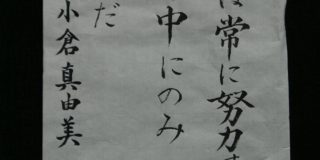 は常に努力す
中にのみ
だ
小倉真由美